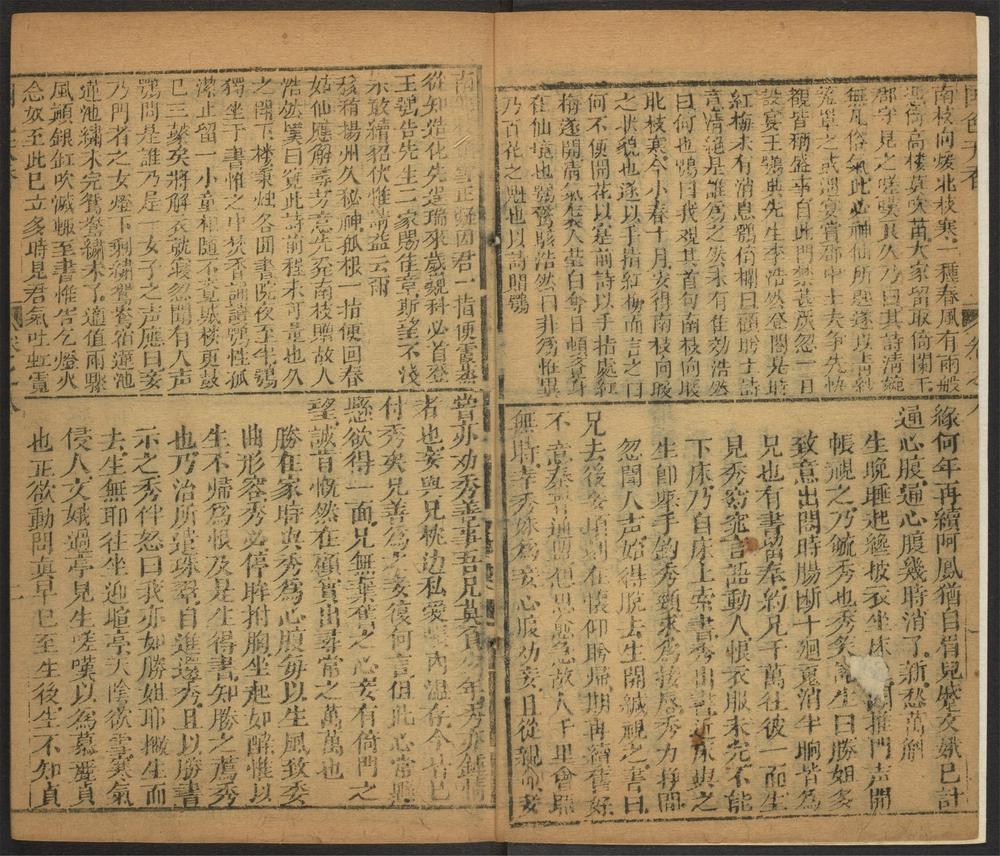 國色天香 卷之八
南枝向煖北枝寒一種春風有兩般
憑倚高樓莫吹笛大家留取倚闌干
郡守見之嗟嘆良久乃曰其詩清婉
無凡俗氣此必神仙所題遂以青紗
籠罩之或遇宴賞郡中士夫爭先快
觀皆稱盛事自此門禁甚嚴忽一日
設宴王鶚與先生李浩然登閣是時
紅梅未有消息鶚倚欄曰顧勝士詩
意清絕是誰為之然未有佳効浩然
曰何也鶚曰我觀其首句南枝向暖
北枝寒今小春十月安得南枝向暖
之狀貌也遂以手指紅梅而言之曰
何不便開花以塞前詩以手指處紅
梅遂開清氣襲人瑩白奪目頓身
在仙境也鶚驚駭浩然曰非為怪異
乃百花之魁也以詩贈鶚
緣何年再續阿鳳猶自眉兒蹙文娥已計
通心腹通心腹幾時消了新愁萬斛
生晚睡起纔披衣坐床聞推門声開
帳視之乃毓秀也秀笑謂生曰勝姐多
致意出閤時腸断十廻䰟消半晌皆為
兄也有書留奉約兄千萬往彼一面生
見秀窈窕言語動人恨衣服未完不能
下床乃自床上索書秀出書近床與之
生即舉手鈎秀頸求為接唇秀力掙間
忽聞人声始得脫去生開緘視之書曰
兄去後妾頃刻在懷仰盼歸期再續舊好
不意秦晋通盟但思恩愈故人千里會
無時幸秀妹為妾心腹劝妾且從親命妾
南正好因君一指便
從知造化先逞瑞來歲巍科必首登
王鶚告先生二家賜佳章斯望不淺
示敢續貂伏惟請益云爾
稍揚州久秘神孤根一指便回春
姑仙應解尋芳意先発南枝贈故人
浩然笑曰覽此詩前程未可量也久
之閤下樓秉燭各囬書院夜至半鶚
獨坐于書帷之中焚香誦讀鶚性孤
潔止留一小童相隨不覺城樓更鼓
已三檠矣將解衣就寢忽聞有人声
鶚問是誰乃是一女子之声應曰妾
乃門者之女燈下刺繡鴛鴦宿蓮池
蓮池繡未完鴛鴦繡未了適值雨驟
風顛銀缸吹滅輙至書帷告乞燈火
念奴至此已立多時見君氣吐虹霓
嘗亦劝秀善事吾兄莫負少年秀亦鍾情
者也妾與兄枕边私愛內温存今皆已
付秀矣兄善為之妾復何言但此心常懸
懸欲得一面兄無棄舊之心妾有倚門之
望誠昔慨然在顧實出尋常之萬萬也
勝在家時與秀為心腹每以生風致委
曲形容秀必停眸拊胸坐起如醉惟以
生不歸為恨及是生得書知勝之薦秀
也乃治所遺珠翠自進還秀且以勝書
示之秀佯怒曰我亦如勝姐耶擲生而
去生無耶往坐迎暄亭天陰欲雪寒氣
侵人文娥過亭見生嗟嘆以為慕麗貞
也正欲動問真早已至生後生不知貞